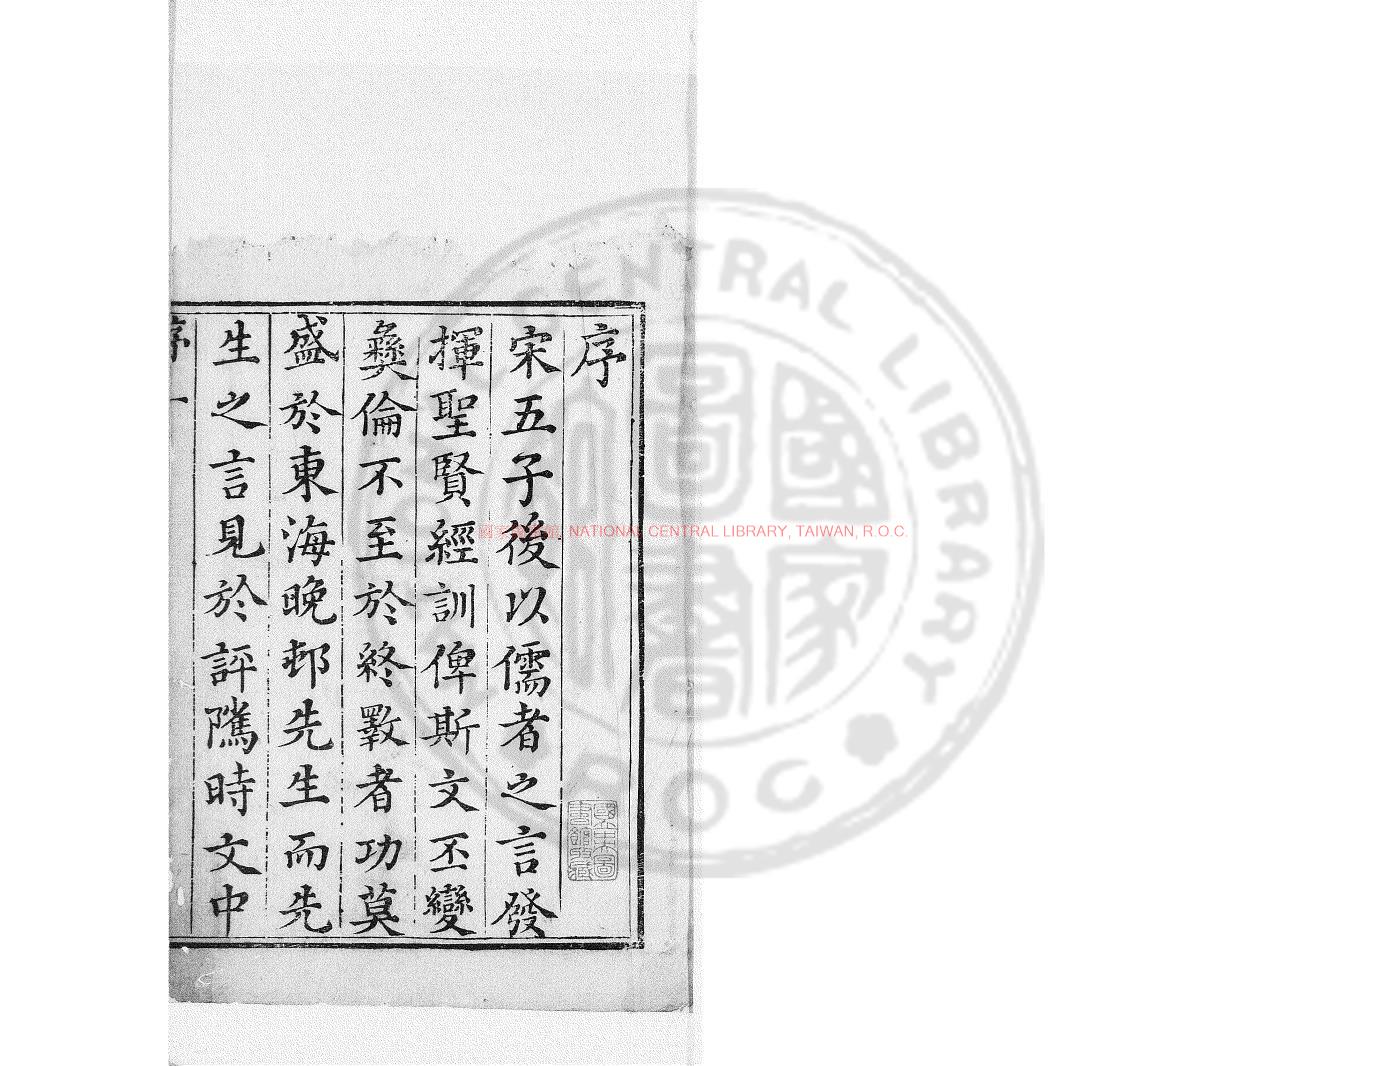 序
宋五子後以儒者之言發
揮聖賢經訓俾斯文丕變
彜倫不至於終斁者功莫
盛於東海晚邨先生而先
生之言見於評隲時文中
序 一
NATIONAL CENTRAL LIBRARY, TAIWAN, R.O.C.
CENTRAL LIBRARY
ROC
國家圖書